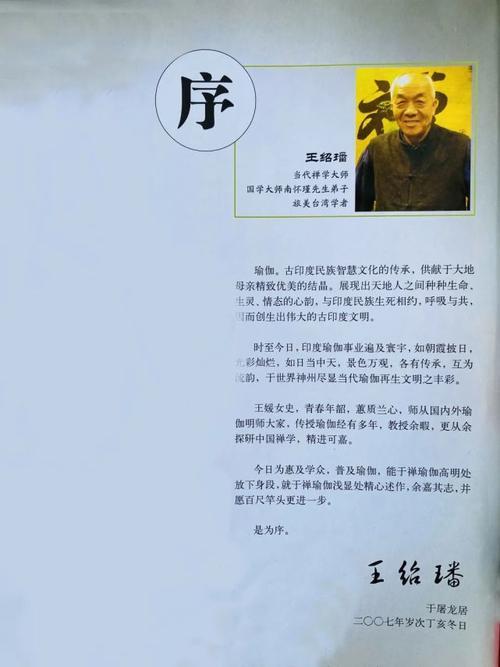 序
王绍璠
当代禅学大师
国学大师南怀瑾先生弟子
旅美台湾学者
瑜伽。古印度民族智慧文化的传承，供献于大地
母亲精致优美的结晶。展现出天地人之间种种生命、
生灵、情态的心韵，与印度民族生死相约，呼吸与共，
因而创生出伟大的古印度文明。
时至今日，印度瑜伽事业遍及寰宇，如朝霞披日，
光彩灿烂，如日当中天，景色万观，各有传承，互为
流韵，于世界神州尽显当代瑜伽再生文明之丰彩。
王媛女史，青春年韶，蕙质兰心，师从国内外瑜
伽明师大家，传授瑜伽经有多年，教授余暇，更从余
探研中国禅学，精进可嘉。
今日为惠及学众，普及瑜伽，能于禅瑜伽高明处
放下身段，就于禅瑜伽浅显处精心述作，余嘉其志，并
愿百尺竿头更进一步。
是为序。
王绍璠
于屠龙居
二〇〇七年岁次丁亥冬日